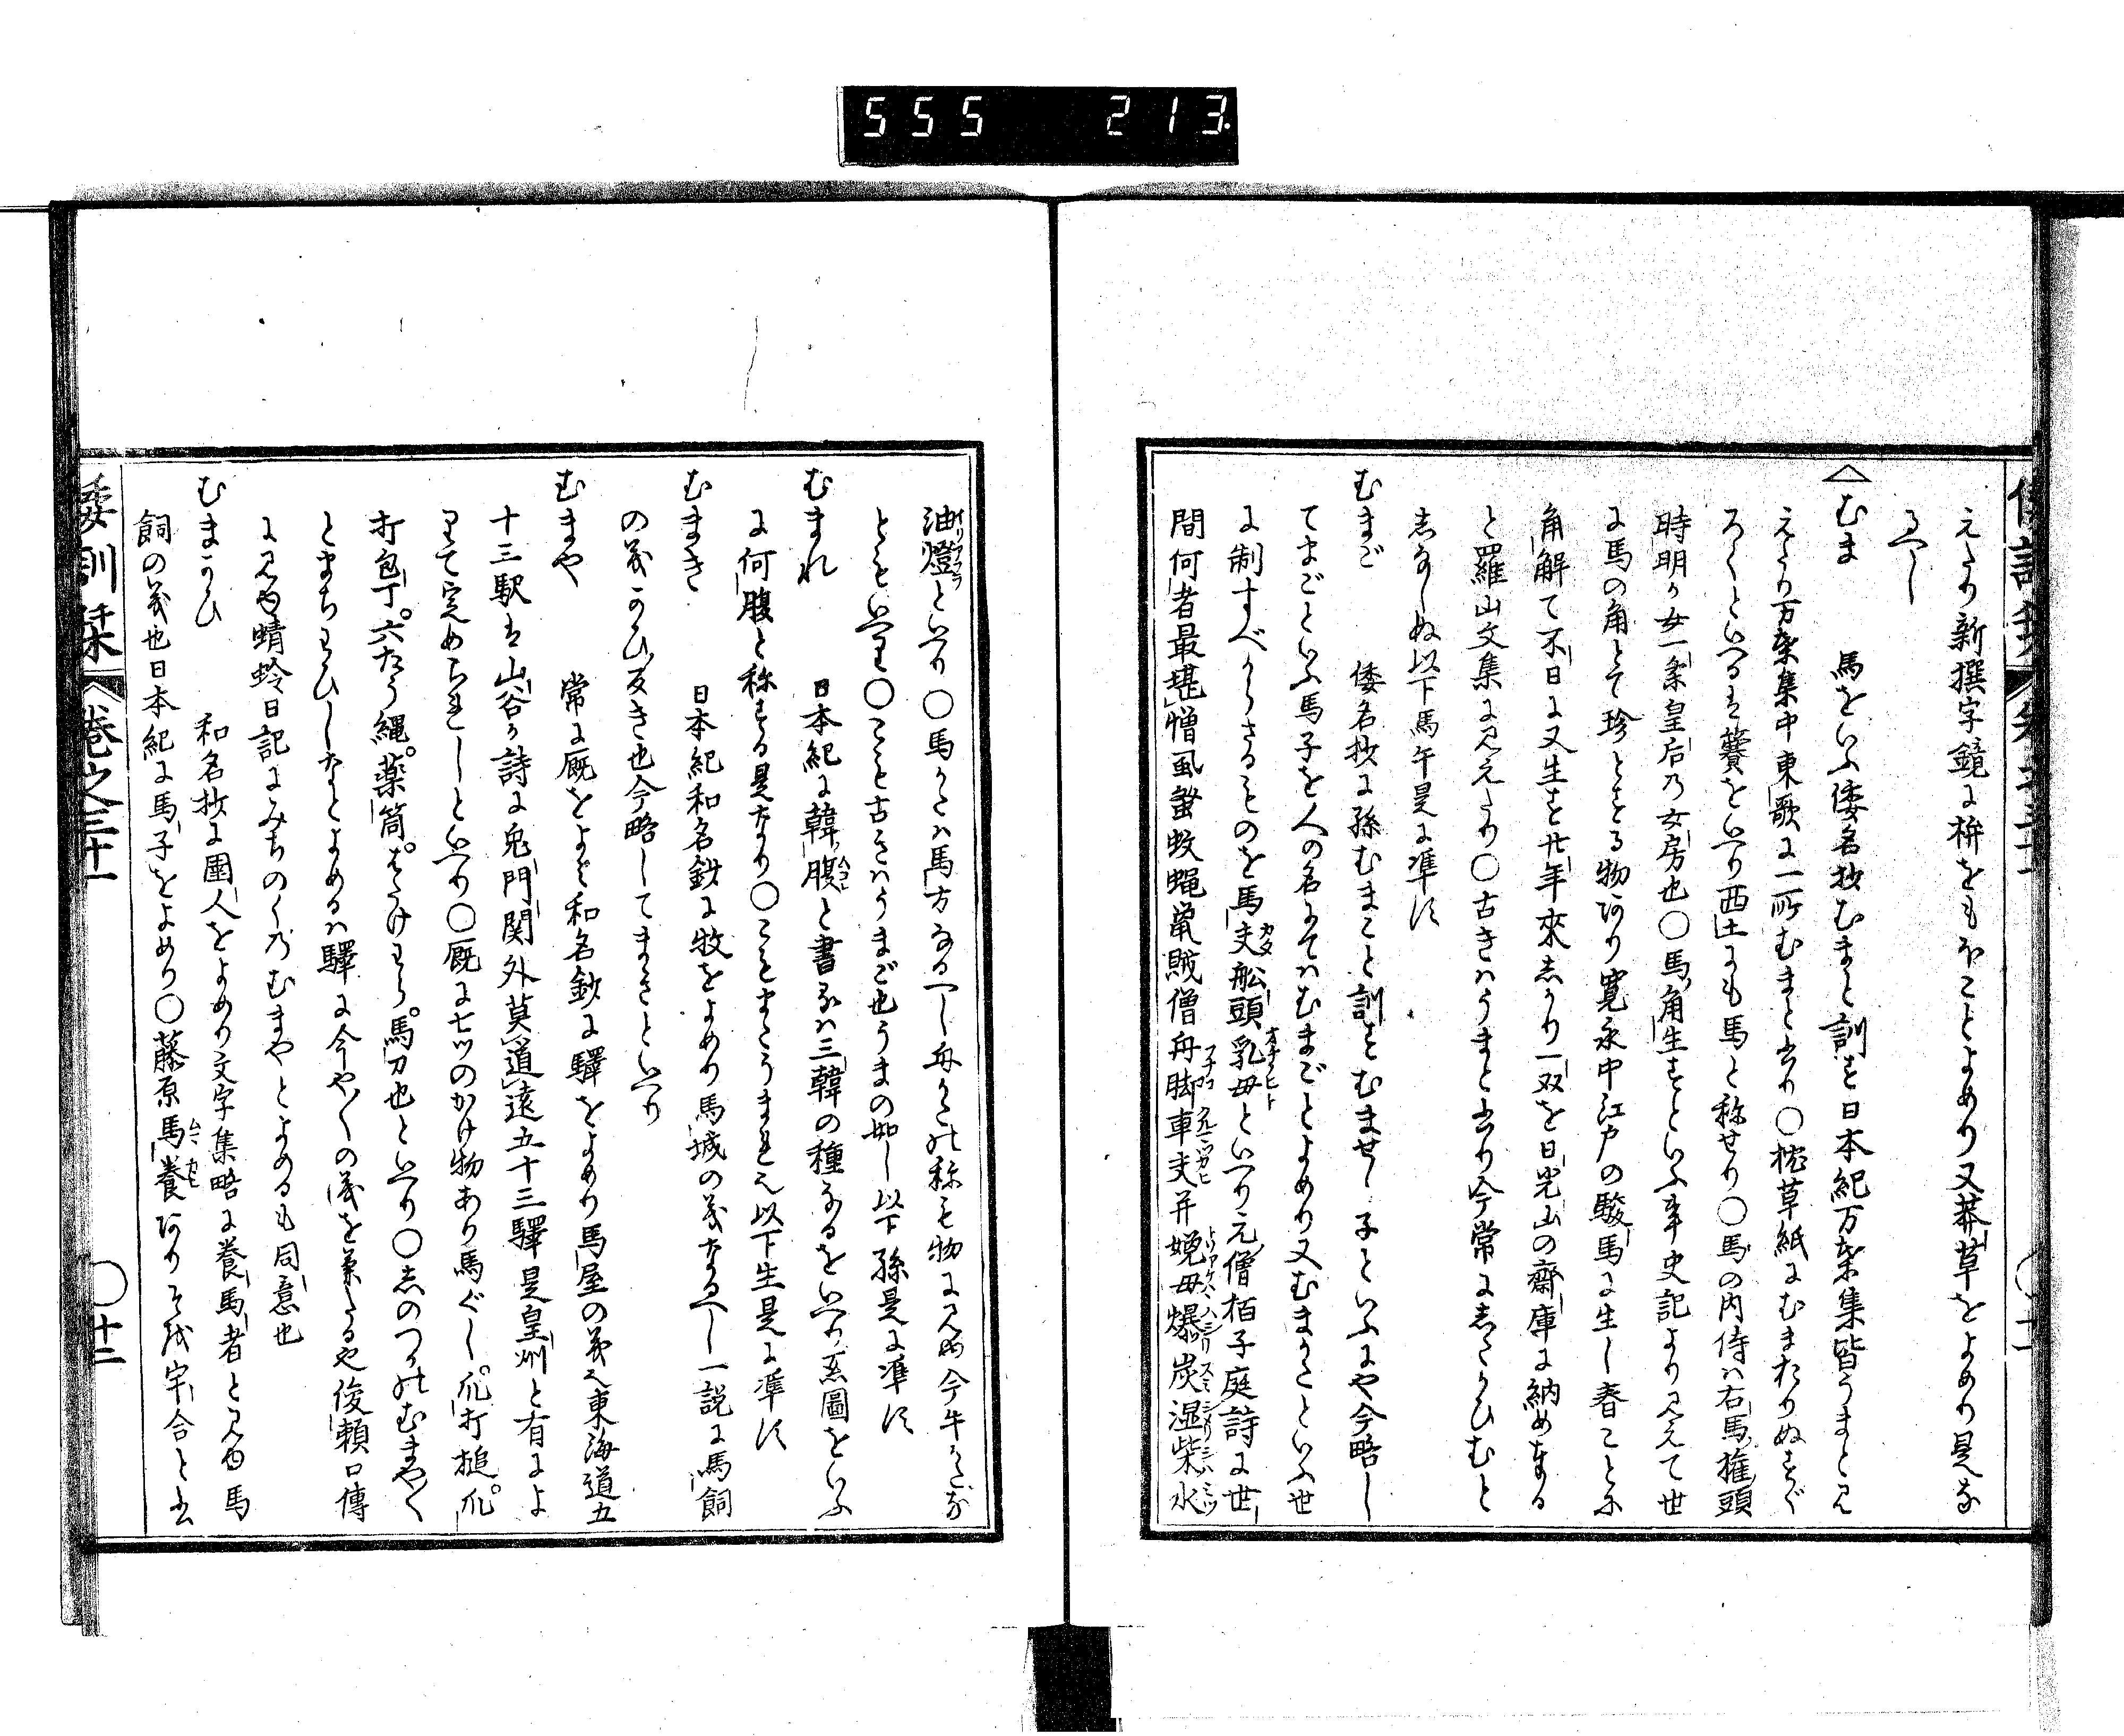 555 213
えたり新撰字鏡に栟をもほことよめり又莽草をよめり是な
るへし
むま 馬をいふ倭名抄むまと訓せ日本紀万葉集皆うまと見
えたり万葉集中東歌に一所むまと出り〇枕草紙にむまおりぬすぐ
ろくといへるは簺をいへり西土にも馬と称せり〇馬の内侍は右馬権頭
時明か女一条皇后の女房也〇馬角生すといふ事史記より見えて世
に馬の角とて珍とする物あり寛永中江戸の駿馬に生し春ことに
角解て不日に又生す廿年來しかり一双を日光山の齋庫に納めある
と羅山文集に見えたり〇古きはうまと出り今常にしたかひむと
しるしぬ以下馬午是に準す
むまご 倭名抄に孫むまこと訓すむませし子といふにや今略し
てまごといふ馬子を人の名にてはむまごとよめり又むまかたといふ世
に制すべからさるものを馬夫舩頭乳母といへり元僧栢子庭詩に世
間何者最堪憎虱蚤蚊蝿鼠賊僧舟脚車夫并娩母爆炭湿柴水
油燈といへり〇馬かたは馬方なるへし舟かたの称も物に見ゆ今牛かたな
ともいへり〇こと古きはうまご也うまの如し以下孫是に準す
むまれ 日本紀に韓腹と書るは三韓の種なるをいへり系圖をいふ
に何腹と称する是なり〇こもまたうまれ也以下生是に準す
むまき 日本紀和名鈔に牧をよめり馬城の義なるへし一説に馬飼
の義かひ反き也今略してまきといへり
むまや 常に厩をよめり和名鈔に驛をよめり馬屋の義也東海道五
十三駅は山谷か詩に兎門関外莫道遠五十三驛是皇州と有によ
りて定められしといへり〇厩に七ツのかけ物あり馬ぐし。爪打槌。爪
打包丁。六たう縄。薬筒。はたけわら。馬刀也といへり〇しのつかのむまやく
とまちわひしなとよめるは驛に今や〳〵の儀を兼たる也俊頼口傳
に見ゆ蜻蛉日記にみちのくのむまやとよめるも同意也
むまかひ 和名抄に圉人をよめり文字集略に養馬者と見ゆ馬
飼の義也日本紀に馬子をよめり〇藤原馬養あり又式宇合と出
倭訓栞 巻之三十一 〇十二